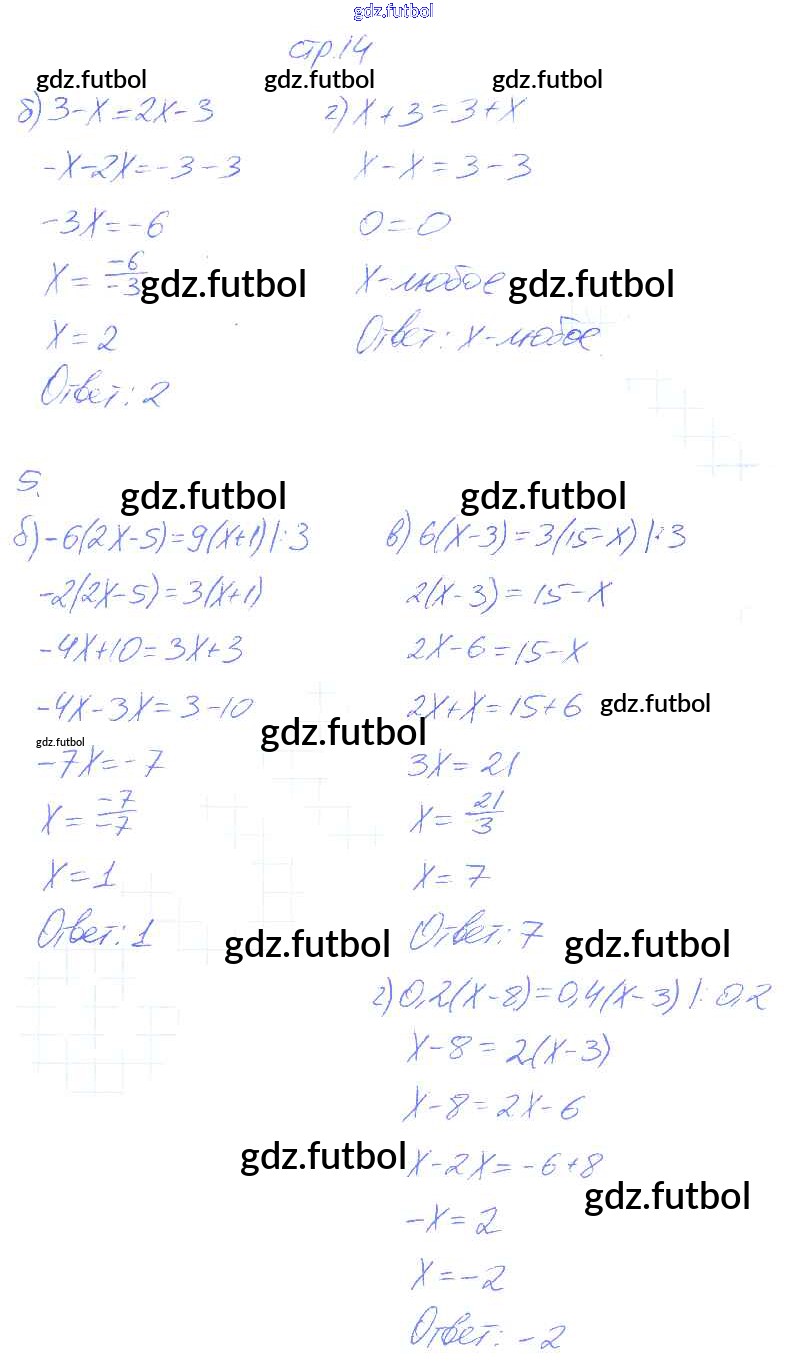 gdz.futbol
стр.14
gdz.futbol gdz.futbol gdz.futbol
б) 3-x=2x-3
-x-2x=-3-3
-3x=-6
x= -6/-3
gdz.futbol
x=2
Ответ: 2
г) x+3=3+x
x-x=3-3
0=0
x-любое
gdz.futbol
Ответ: x-любое
5.
gdz.futbol gdz.futbol
б) -6(2x-5)=9(x+1) |:3
-2(2x-5)=3(x+1)
-4x+10=3x+3
-4x-3x=3-10
gdz.futbol
gdz.futbol
-7x=-7
x= -7/-7
x=1
Ответ: 1
gdz.futbol
в) 6(x-3)=3(15-x) |:3
2(x-3)=15-x
2x-6=15-x
2x+x=15+6
gdz.futbol
3x=21
x= 21/3
x=7
Ответ: 7
gdz.futbol
г) 0,2(x-8)=0,4(x-3) |:0,2
x-8=2(x-3)
x-8=2x-6
gdz.futbol
x-2x=-6+8
gdz.futbol
-x=2
x=-2
Ответ: -2